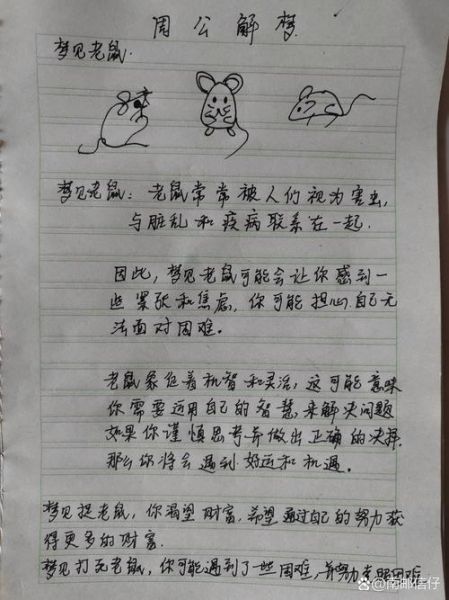 周公解梦
梦见老鼠.
梦见老鼠: 老鼠常常被人们视为害虫,
与脏乱和疾病联系在一起.
因此, 梦见老鼠可能会让你感到一
些紧张和焦虑, 你可能担心自己无
法面对困难.
老鼠象征着机智和灵活, 这可能意味
你需要运用自己的智慧来解决问题
如果你谨慎思考并做出正确的决择,
那么你将会遇到好运和机遇.
梦见捉老鼠, 你渴望财富, 希望通过自己的努力获
得更多的财富.
梦见打死老鼠, 你可能遇到了一些困难, 并努力克服困难